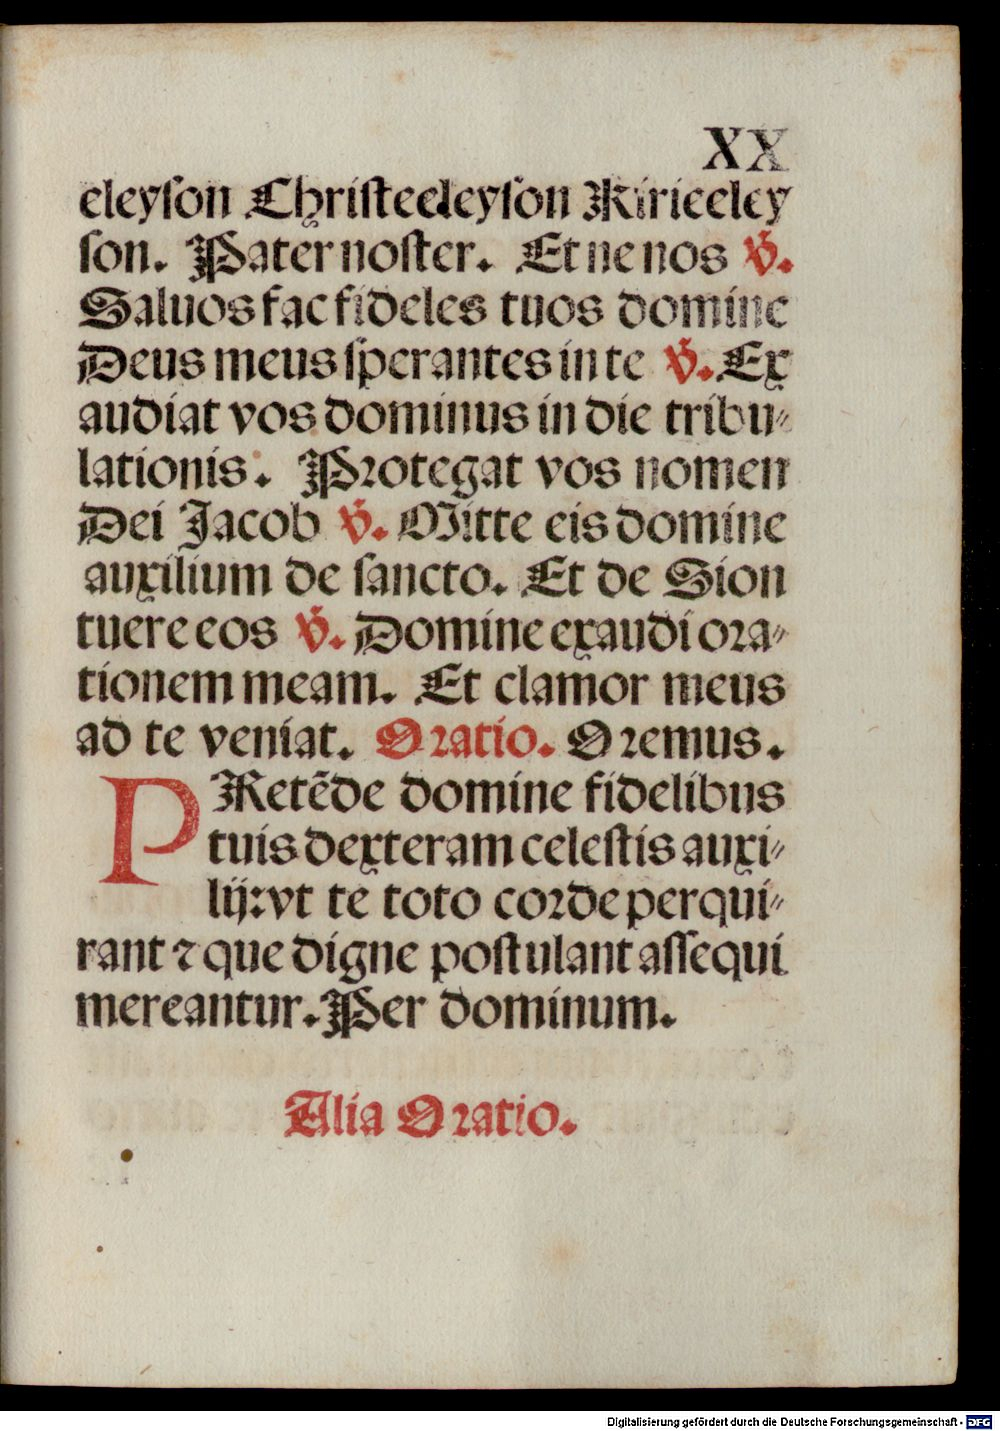 XX
eleyſon Chriſteeleyſon Kirieeley
ſon. Pater noſter. Et ne nos ℣.
Saluos fac fideles tuos domine
Deus meus ſperantes in te ℣. Ex
audiat vos dominus in die tribu⸗
lationis. Protegat vos nomen
Dei Jacob ℣. Mitte eis domine
auxilium de ſancto. Et de Sion
tuere eos ℣. Domine exaudi ora⸗
tionem meam. Et clamor meus
ad te veniat. Oratio. Oremus.
PRetēde domine fidelibus
tuis dexteram celeſtis auxi⸗
lij: vt te toto corde perqui⸗
rant ⁊ que digne poſtulant aſſequi
mereantur. Per dominum.
Alia Oratio.
Digitalisierung gefördert durch die Deutsche Forschungsgemeinschaft - DFG